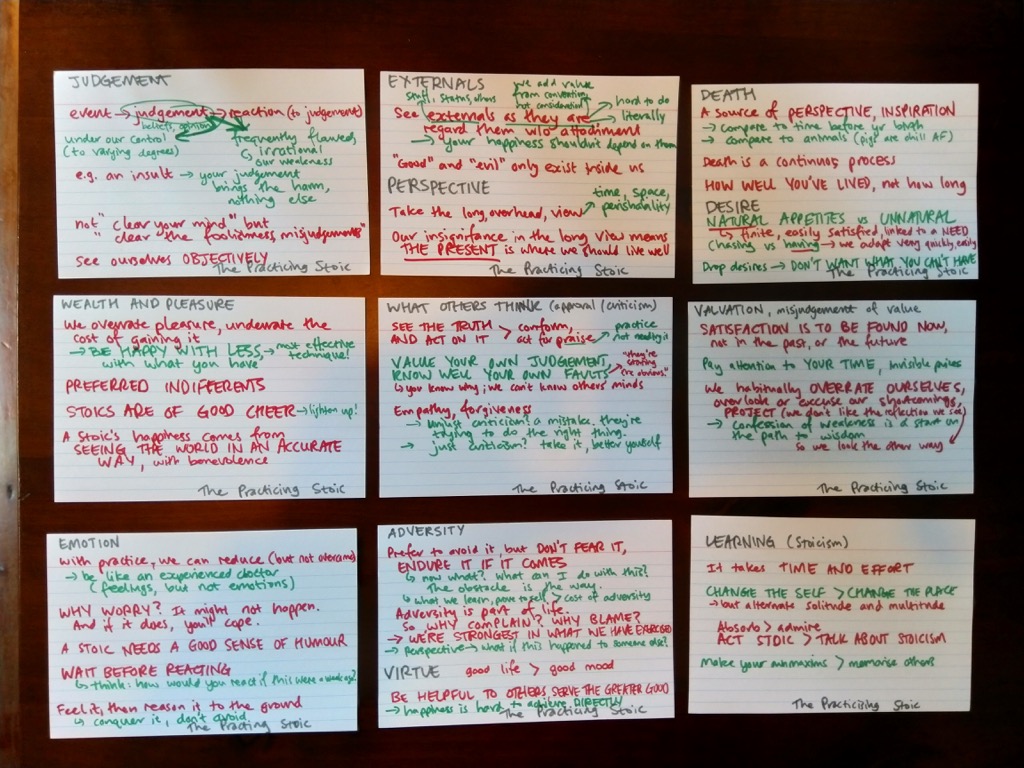 JUDGEMENT
event → judgement → reaction (to judgement)
beliefs, opinion
under our control
(to varying degrees)
frequently flawed,
↳ irrational
our weakness
e.g. an insult → your judgement
brings the harm,
nothing else
not "clear your mind" but
"clear the foolishness, misjudgements"
See ourselves OBJECTIVELY
The Practicing Stoic
EXTERNALS
stuff, status, others
we add value
from convention,
not consideration
See externals as they are
hard to do
literally
regard them w/o attachment
→ your happiness shouldn't depend on them
"Good" and "evil" only exist inside us
PERSPECTIVE
Take the long, overhead, view
time, space,
perishability
Our insignificance in the long view means
THE PRESENT is where we should live well
The Practicing Stoic
DEATH
A source of PERSPECTIVE, INSPIRATION
→ compare to time before yr birth
→ compare to animals (pigs are chill AF)
Death is a continuous process
HOW WELL YOU'VE LIVED, not how long
DESIRE
NATURAL APPETITES vs UNNATURAL
↳ finite, easily satisfied, linked to a NEED
Chasing vs having → we adapt very quickly, easily
Drop desires → DON'T WANT WHAT YOU CAN'T HAVE
The Practicing Stoic
WEALTH AND PLEASURE
We overrate pleasure, underrate the
cost of gaining it
→ BE HAPPY WITH LESS, → most effective
with what you have technique!
PREFERRED INDIFFERENTS
STOICS ARE OF GOOD CHEER → lighten up!
A Stoic's happiness comes from
SEEING THE WORLD IN AN ACCURATE
WAY, with benevolence
The Practicing Stoic
WHAT OTHERS THINK (approval/criticism)
SEE THE TRUTH > conform,
AND ACT ON IT act for praise
practice
not needing it
VALUE YOUR OWN JUDGEMENT,
KNOW WELL YOUR OWN FAULTS
↳ you know why; we can't know others' minds
Empathy, forgiveness
→ unjust criticism? a mistake. they're
trying to do the right thing.
→ just criticism? take it, better yourself
The Practicing Stoic
VALUATION, misjudgement of value
SATISFACTION IS TO BE FOUND NOW,
not in the past, or the future
Pay attention to YOUR TIME, invisible prices
We habitually OVERRATE OURSELVES,
overlook or excuse our shortcomings,
PROJECT (we don't like the reflection we see)
→ confession of weakness is a start on
the path to wisdom
so we look the other way
The Practicing Stoic
EMOTION
With practice, we can reduce (but not overcome)
→ be like an experienced doctor
(feelings, but not emotions)
WHY WORRY? It might not happen.
And if it does, you'll cope.
A STOIC NEEDS A GOOD SENSE OF HUMOUR
WAIT BEFORE REACTING
↳ think: how would you react if this were a week ago?
Feel it, then reason it to the ground
↳ conquer it, don't avoid
The Practing Stoic
ADVERSITY
Prefer to avoid it, but DON'T FEAR IT,
ENDURE IT IF IT COMES
↳ now what? What can I do with this?
The obstacle is the way.
↳ what we learn, prove to self > cost of adversity
Adversity is part of life.
So WHY COMPLAIN? WHY BLAME?
→ WE'RE STRONGEST IN WHAT WE HAVE EXERCISED
→ Perspective → what if this happened to someone else?
VIRTUE good life > good mood
BE HELPFUL TO OTHERS SERVE THE GREATER GOOD
→ happiness is hard to achieve DIRECTLY
The Practicing Stoic
LEARNING (Stoicism)
It takes TIME AND EFFORT
CHANGE THE SELF > CHANGE THE PLACE
→ but alternate solitude and multitude
Absorb > admire
ACT STOIC > TALK ABOUT STOICISM
Make your own maxims > memorise others
The Practicising Stoic